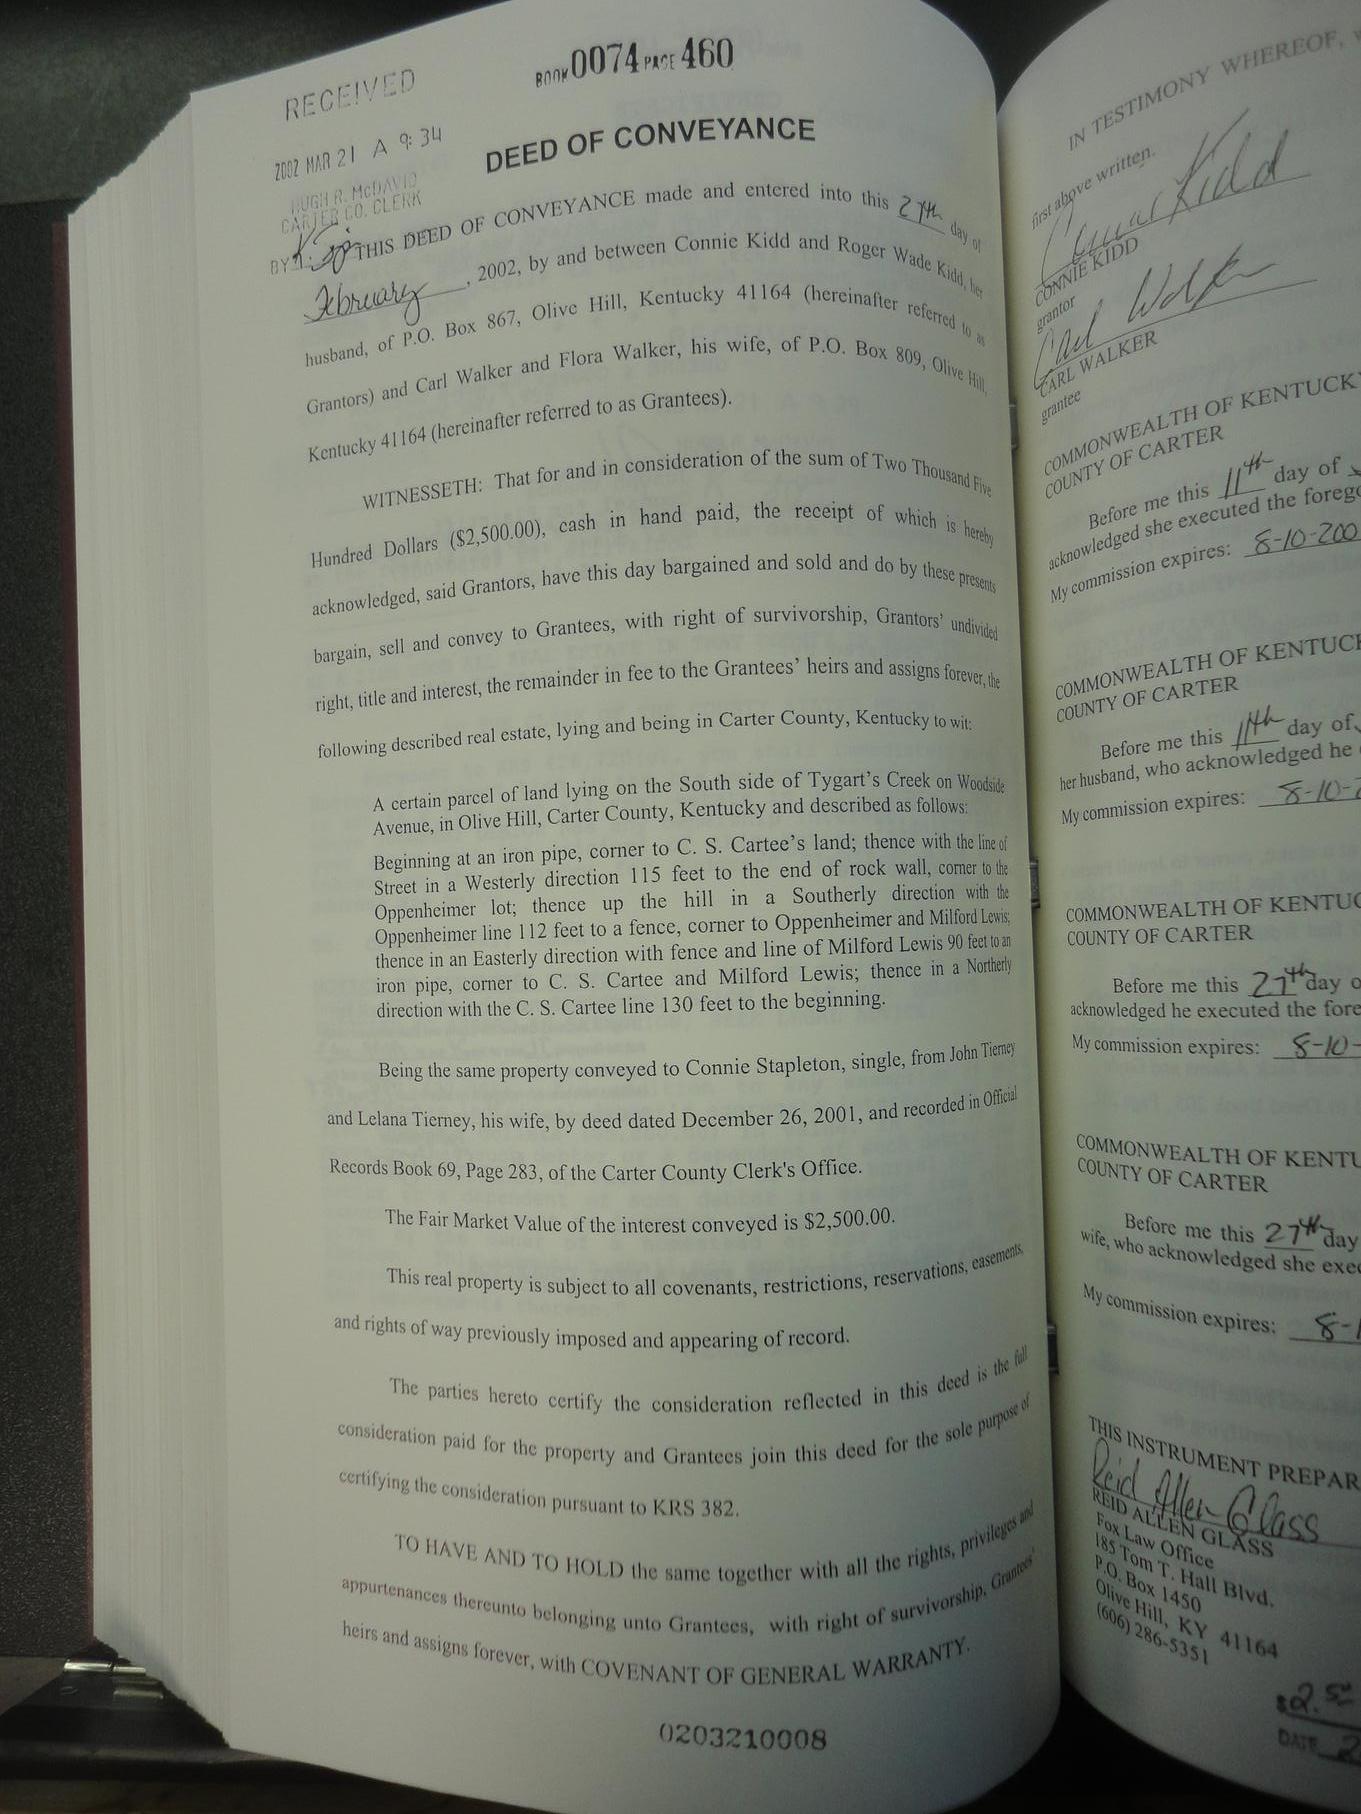 BOOK 0074 PAGE 460
RECEIVED
2002 MAR 21 A 9:34
HUGH R. McDAVID
CARTER CO. CLERK
BY
DEED OF CONVEYANCE
THIS DEED OF CONVEYANCE made and entered into this 27th day of
February, 2002, by and between Connie Kidd and Roger Wade Kidd, her
husband, of P.O. Box 867, Olive Hill, Kentucky 41164 (hereinafter referred to as
Grantors) and Carl Walker and Flora Walker, his wife, of P.O. Box 809, Olive Hill,
Kentucky 41164 (hereinafter referred to as Grantees).
WITNESSETH: That for and in consideration of the sum of Two Thousand Five
Hundred Dollars ($2,500.00), cash in hand paid, the receipt of which is hereby
acknowledged, said Grantors, have this day bargained and sold and do by these presents
bargain, sell and convey to Grantees, with right of survivorship, Grantors' undivided
right, title and interest, the remainder in fee to the Grantees' heirs and assigns forever, the
following described real estate, lying and being in Carter County, Kentucky to wit:
A certain parcel of land lying on the South side of Tygart's Creek on Woodside
Avenue, in Olive Hill, Carter County, Kentucky and described as follows:
Beginning at an iron pipe, corner to C. S. Cartee's land; thence with the line of
Street in a Westerly direction 115 feet to the end of rock wall, corner to the
Oppenheimer lot; thence up the hill in a Southerly direction with the
Oppenheimer line 112 feet to a fence, corner to Oppenheimer and Milford Lewis;
thence in an Easterly direction with fence and line of Milford Lewis 90 feet to an
iron pipe, corner to C. S. Cartee and Milford Lewis; thence in a Northerly
direction with the C. S. Cartee line 130 feet to the beginning.
Being the same property conveyed to Connie Stapleton, single, from John Tierney
and Lelana Tierney, his wife, by deed dated December 26, 2001, and recorded in Official
Records Book 69, Page 283, of the Carter County Clerk's Office.
The Fair Market Value of the interest conveyed is $2,500.00.
This real property is subject to all covenants, restrictions, reservations, easements,
and rights of way previously imposed and appearing of record.
The parties hereto certify the consideration reflected in this deed is the full
consideration paid for the property and Grantees join this deed for the sole purpose of
certifying the consideration pursuant to KRS 382.
TO HAVE AND TO HOLD the same together with all the rights, privileges and
appurtenances thereunto belonging unto Grantees, with right of survivorship, Grantees'
heirs and assigns forever, with COVENANT OF GENERAL WARRANTY.
0203210008
IN TESTIMONY WHEREOF,
first above written.
Connie Kidd
CONNIE KIDD
grantor
Carl Walker
CARL WALKER
grantee
COMMONWEALTH OF KENTUCKY
COUNTY OF CARTER
Before me this 11th day of
acknowledged she executed the forego
My commission expires: 8-10-200
COMMONWEALTH OF KENTUCK
COUNTY OF CARTER
Before me this 11th day of
her husband, who acknowledged he
My commission expires: 8-10-2
COMMONWEALTH OF KENTUC
COUNTY OF CARTER
Before me this 27th day o
acknowledged he executed the fore
My commission expires: 8-10-
COMMONWEALTH OF KENTU
COUNTY OF CARTER
Before me this 27th day
wife, who acknowledged she exec
My commission expires: 8-1
THIS INSTRUMENT PREPAR
Reid Allen Glass
REID ALLEN GLASS
Fox Law Office
185 Tom T. Hall Blvd.
P.O. Box 1450
Olive Hill, KY 41164
(606) 286-5351
$2.50
DATE 2